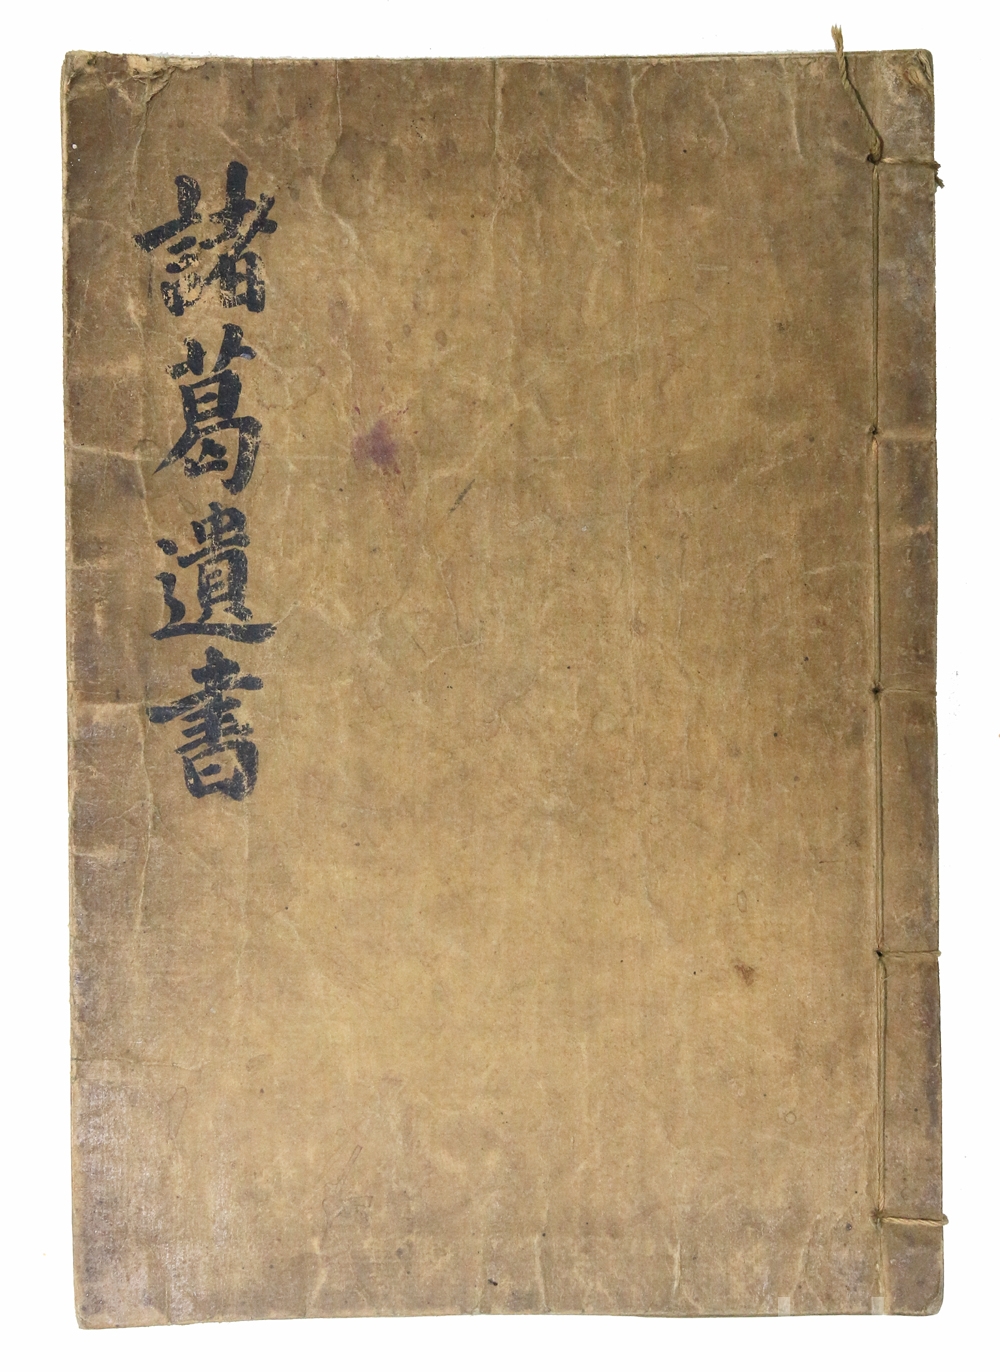 諸葛遺書